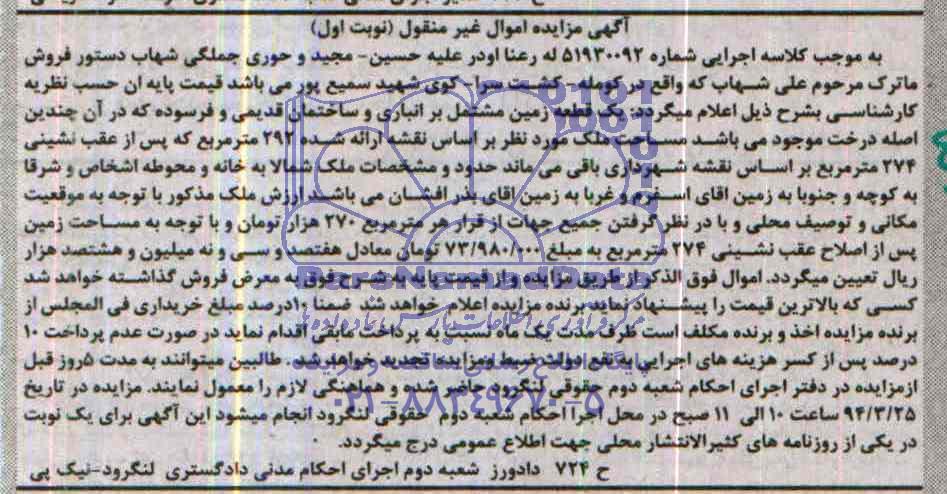 آگهی مزایده اموال غیر منقول (نوبت اول)
به موجب کلاسه اجرایی شماره ۵۱۹۳۰۰۹۲ له رعنا اودر علیه حسین- مجید و حوری جملگی شهاب دستور فروش
ماترک مرحوم علی شهاب که واقع در کومله- کشت سرا- کوی شهید سمیع پور می باشد قیمت پایه ان حسب نظریه
کارشناسی بشرح ذیل اعلام میگردد. یک قطعه زمین مشتمل بر انباری و ساختمان قدیمی و فرسوده که در آن چندین
اصله درخت موجود می باشد مساحت ملک مورد نظر بر اساس نقشه ارائه شده ۲۹۲ مترمربع که پس از عقب نشینی
۲۷۴ مترمربع بر اساس نقشه شهرداری باقی می ماند حدود و مشخصات ملک شمالا به خانه و محوطه اشخاص و شرقا
به کوچه و جنوبا به زمین اقای و غربا به زمین اقای بذر افشان می باشد ارزش ملک مذکور با توجه به موقعیت
مکانی و توصیف محلی و با در نظر گرفتن جمیع جهات از قرار هر مترمربع ۲۷۰ هزار تومان و با توجه به مساحت زمین
پس از اصلاح عقب نشینی ۲۷۴ مترمربع به مبلغ ۷۳/۹۸۰/۰۰۰ تومان معادل هفتصد و سی و نه میلیون و هشتصد هزار
ریال تعیین میگردد. اموال فوق الذکر از طریق مزایده و از قیمت پایه به شرح فوق به معرض فروش گذاشته خواهد شد
کسی که بالاترین قیمت را پیشنهاد نماید برنده مزایده اعلام خواهد شد ضمنا ۱۰درصد مبلغ خریداری فی المجلس از
برنده مزایده اخذ و برنده مکلف است ظرف مدت یک ماه نسبت به پرداخت مابقی اقدام نماید در صورت عدم پرداخت ۱۰
درصد پس از کسر هزینه های اجرایی به نفع دولت ضبط و مزایده تجدید خواهد شد. طالبین میتوانند به مدت ۵روز قبل
ازمزایده در دفتر اجرای احکام شعبه دوم حقوقی لنگرود حاضر شده و هماهنگی لازم را معمول نمایند. مزایده در تاریخ
۹۴/۳/۲۵ ساعت ۱۰ الی ۱۱ صبح در محل اجرا احکام شعبه دوم حقوقی لنگرود انجام میشود این آگهی برای یک نوبت
در یکی از روزنامه های کثیرالانتشار محلی جهت اطلاع عمومی درج میگردد.
ح ۷۲۴ دادورز شعبه دوم اجرای احکام مدنی دادگستری لنگرود-نیک پی
ParsNamadData
مرکز فرآوری اطلاعات پارس نماد داده ها
۰۲۱-۸۸۳۴۹۶۷۰-۵